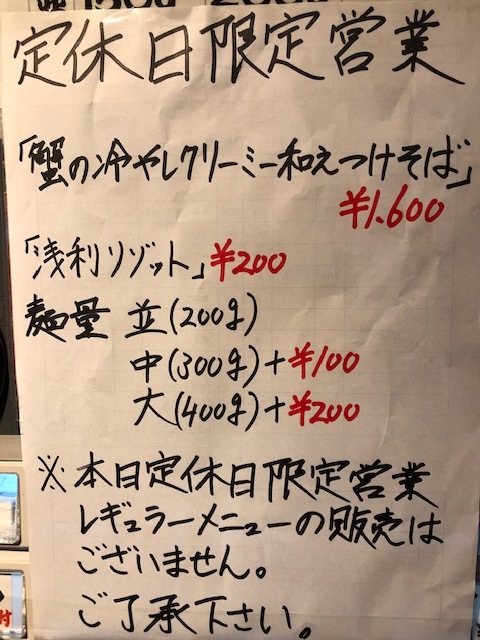 定休日限定営業
「蟹の冷やしクリーミー和えつけそば」
¥1.600
「浅利リゾット」¥200
麺量 並(200g)
中(300g)+¥100
大(400g)+¥200
※本日定休日限定営業
レギュラーメニューの販売は
ございません。
ご了承下さい。
付